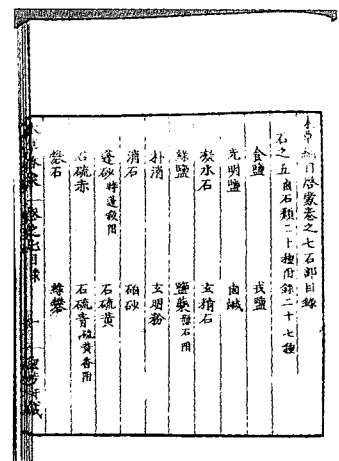 本草綱目啓蒙巻之七石部目録
石之五鹵石類二十種附録二十七種
食鹽 戎鹽
光明鹽 鹵鹹
凝水石 玄精石
緑鹽 鹽藥
朴消 玄明粉
消石 硇砂
蓬砂 特蓬殺附 石硫黄
石硫赤 石硫青 硫黄香附
礬石 緑礬